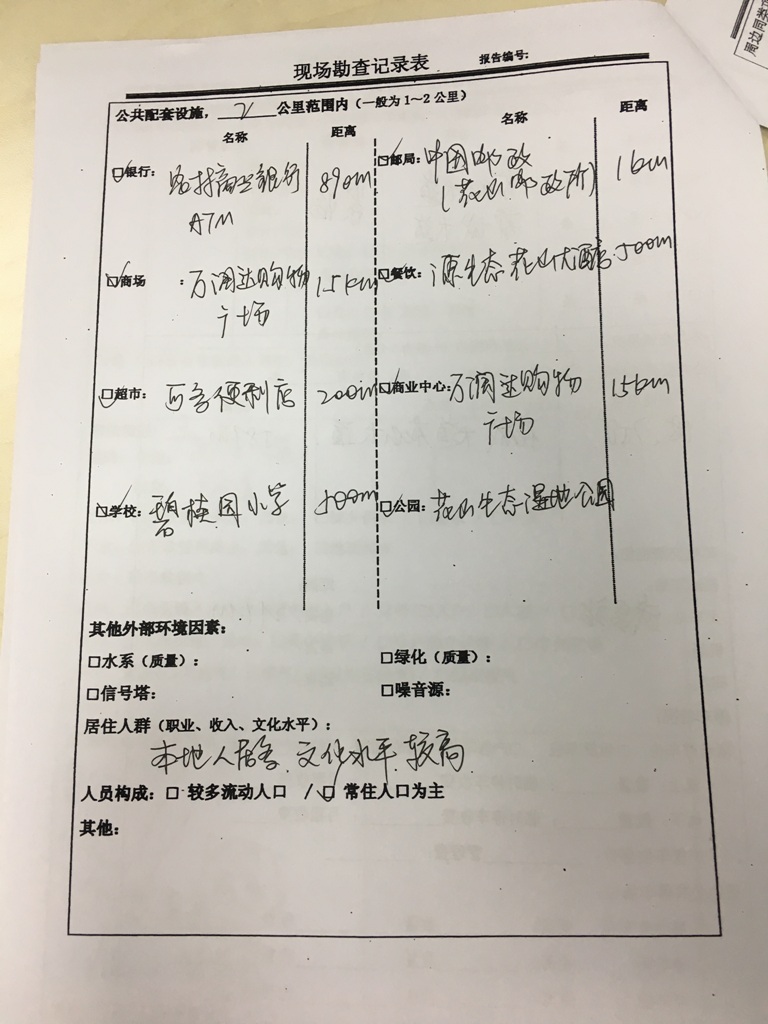 现场勘查记录表 报告编号:
公共配套设施, 2 公里范围内（一般为1～2公里）
名称 距离 名称 距离
☑银行: 农村商业银行 890m ☑邮局: 中国邮政 1km
ATM （花山邮政所）
☑商场 : 万润达购物 1.5km ☑餐饮: 源生态花山大酒店 500m
广场
☑超市: 可多便利店 200m ☑商业中心: 万润达购物 1.5km
广场
☑学校: 碧桂园小学 500m ☑公园: 花山生态湿地公园
其他外部环境因素:
□水系（质量）: □绿化（质量）:
□信号塔: □噪音源:
居住人群（职业、收入、文化水平）:
本地人居多、文化水平较高
人员构成: □ 较多流动人口 / ☑ 常住人口为主
其他:
周边同类